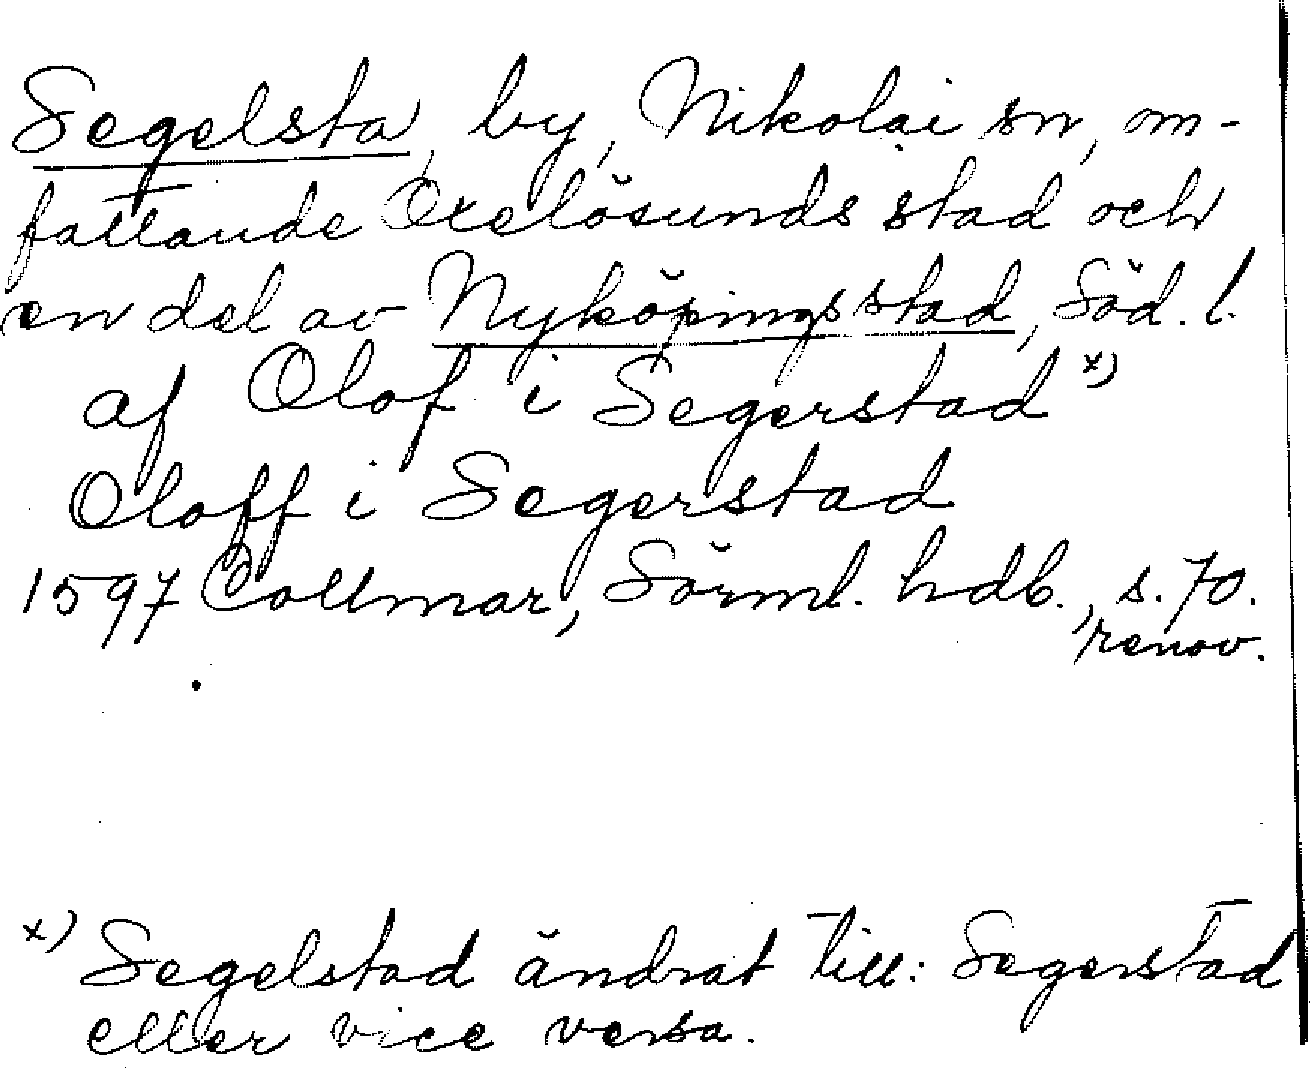 Segelsta, by, Nikolai sn, om-
fattande Oxelösunds stad och
en del av Nyköpings stad, Söd. l.
af Olof i Segerstad x)
Oloff i Segerstad
1597 Collmar, Sörml. hdb., s. 70.
renov.
x) Segelstad ändrat till: Segerstad
eller vice versa.